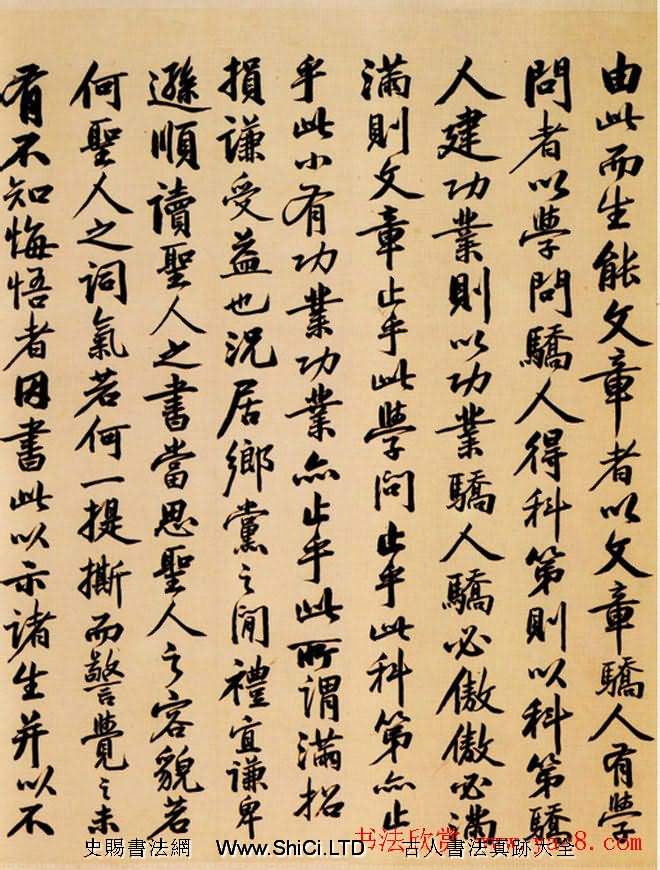 由此而生能文章者以文章驕人有學
問者以學問驕人得科第則以科第驕
人建功業則以功業驕人驕必傲傲必滿
滿則文章止乎此學问止乎此科第亦止
乎此小有功業功業亦止乎此所謂滿招
損謙受益也况居鄉黨之間禮宜謙卑
遜順讀聖人之書當思聖人之容貌若
何聖人之詞氣若何一提撕而警覺之未
有不知悔悟者因書此以示諸生并以不
书法欣赏 www.yac8.com
史賜書法網 www.ShiCi.LTD 古人書法真跡大全